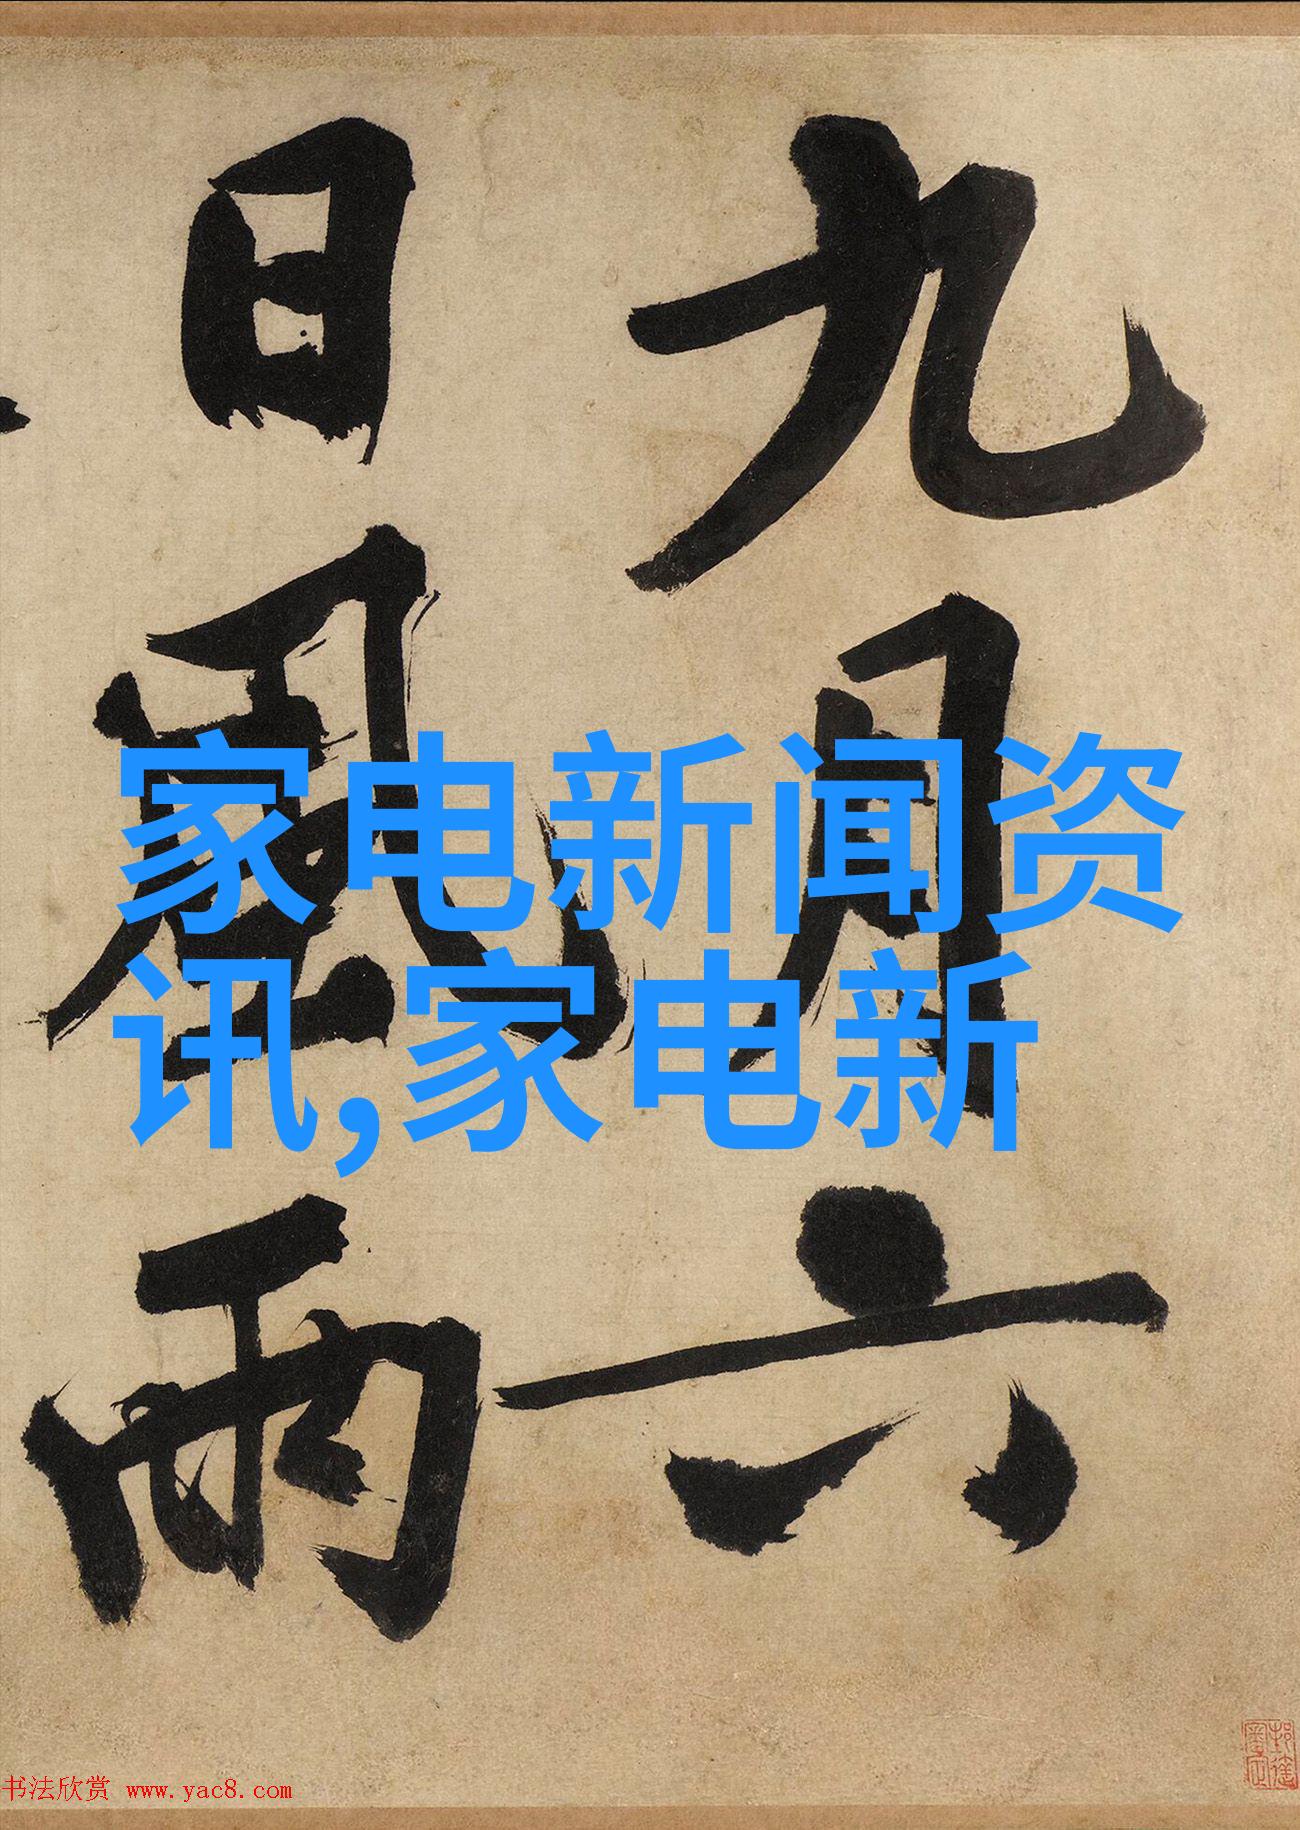 九月六
日風雨
家电新闻资
讯,家电新
书法欣赏 www.yac8.com